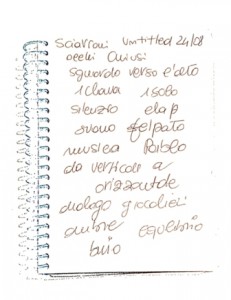 Sciarroni Untitled 24/08
occhi chiusi
sguardo verso l'alto
1 clava 1 solo
silenzio clap
suono felpato
musica Pablo
da verticale a
orizzontale
dialogo giocolieri
amore equilibrio
buio